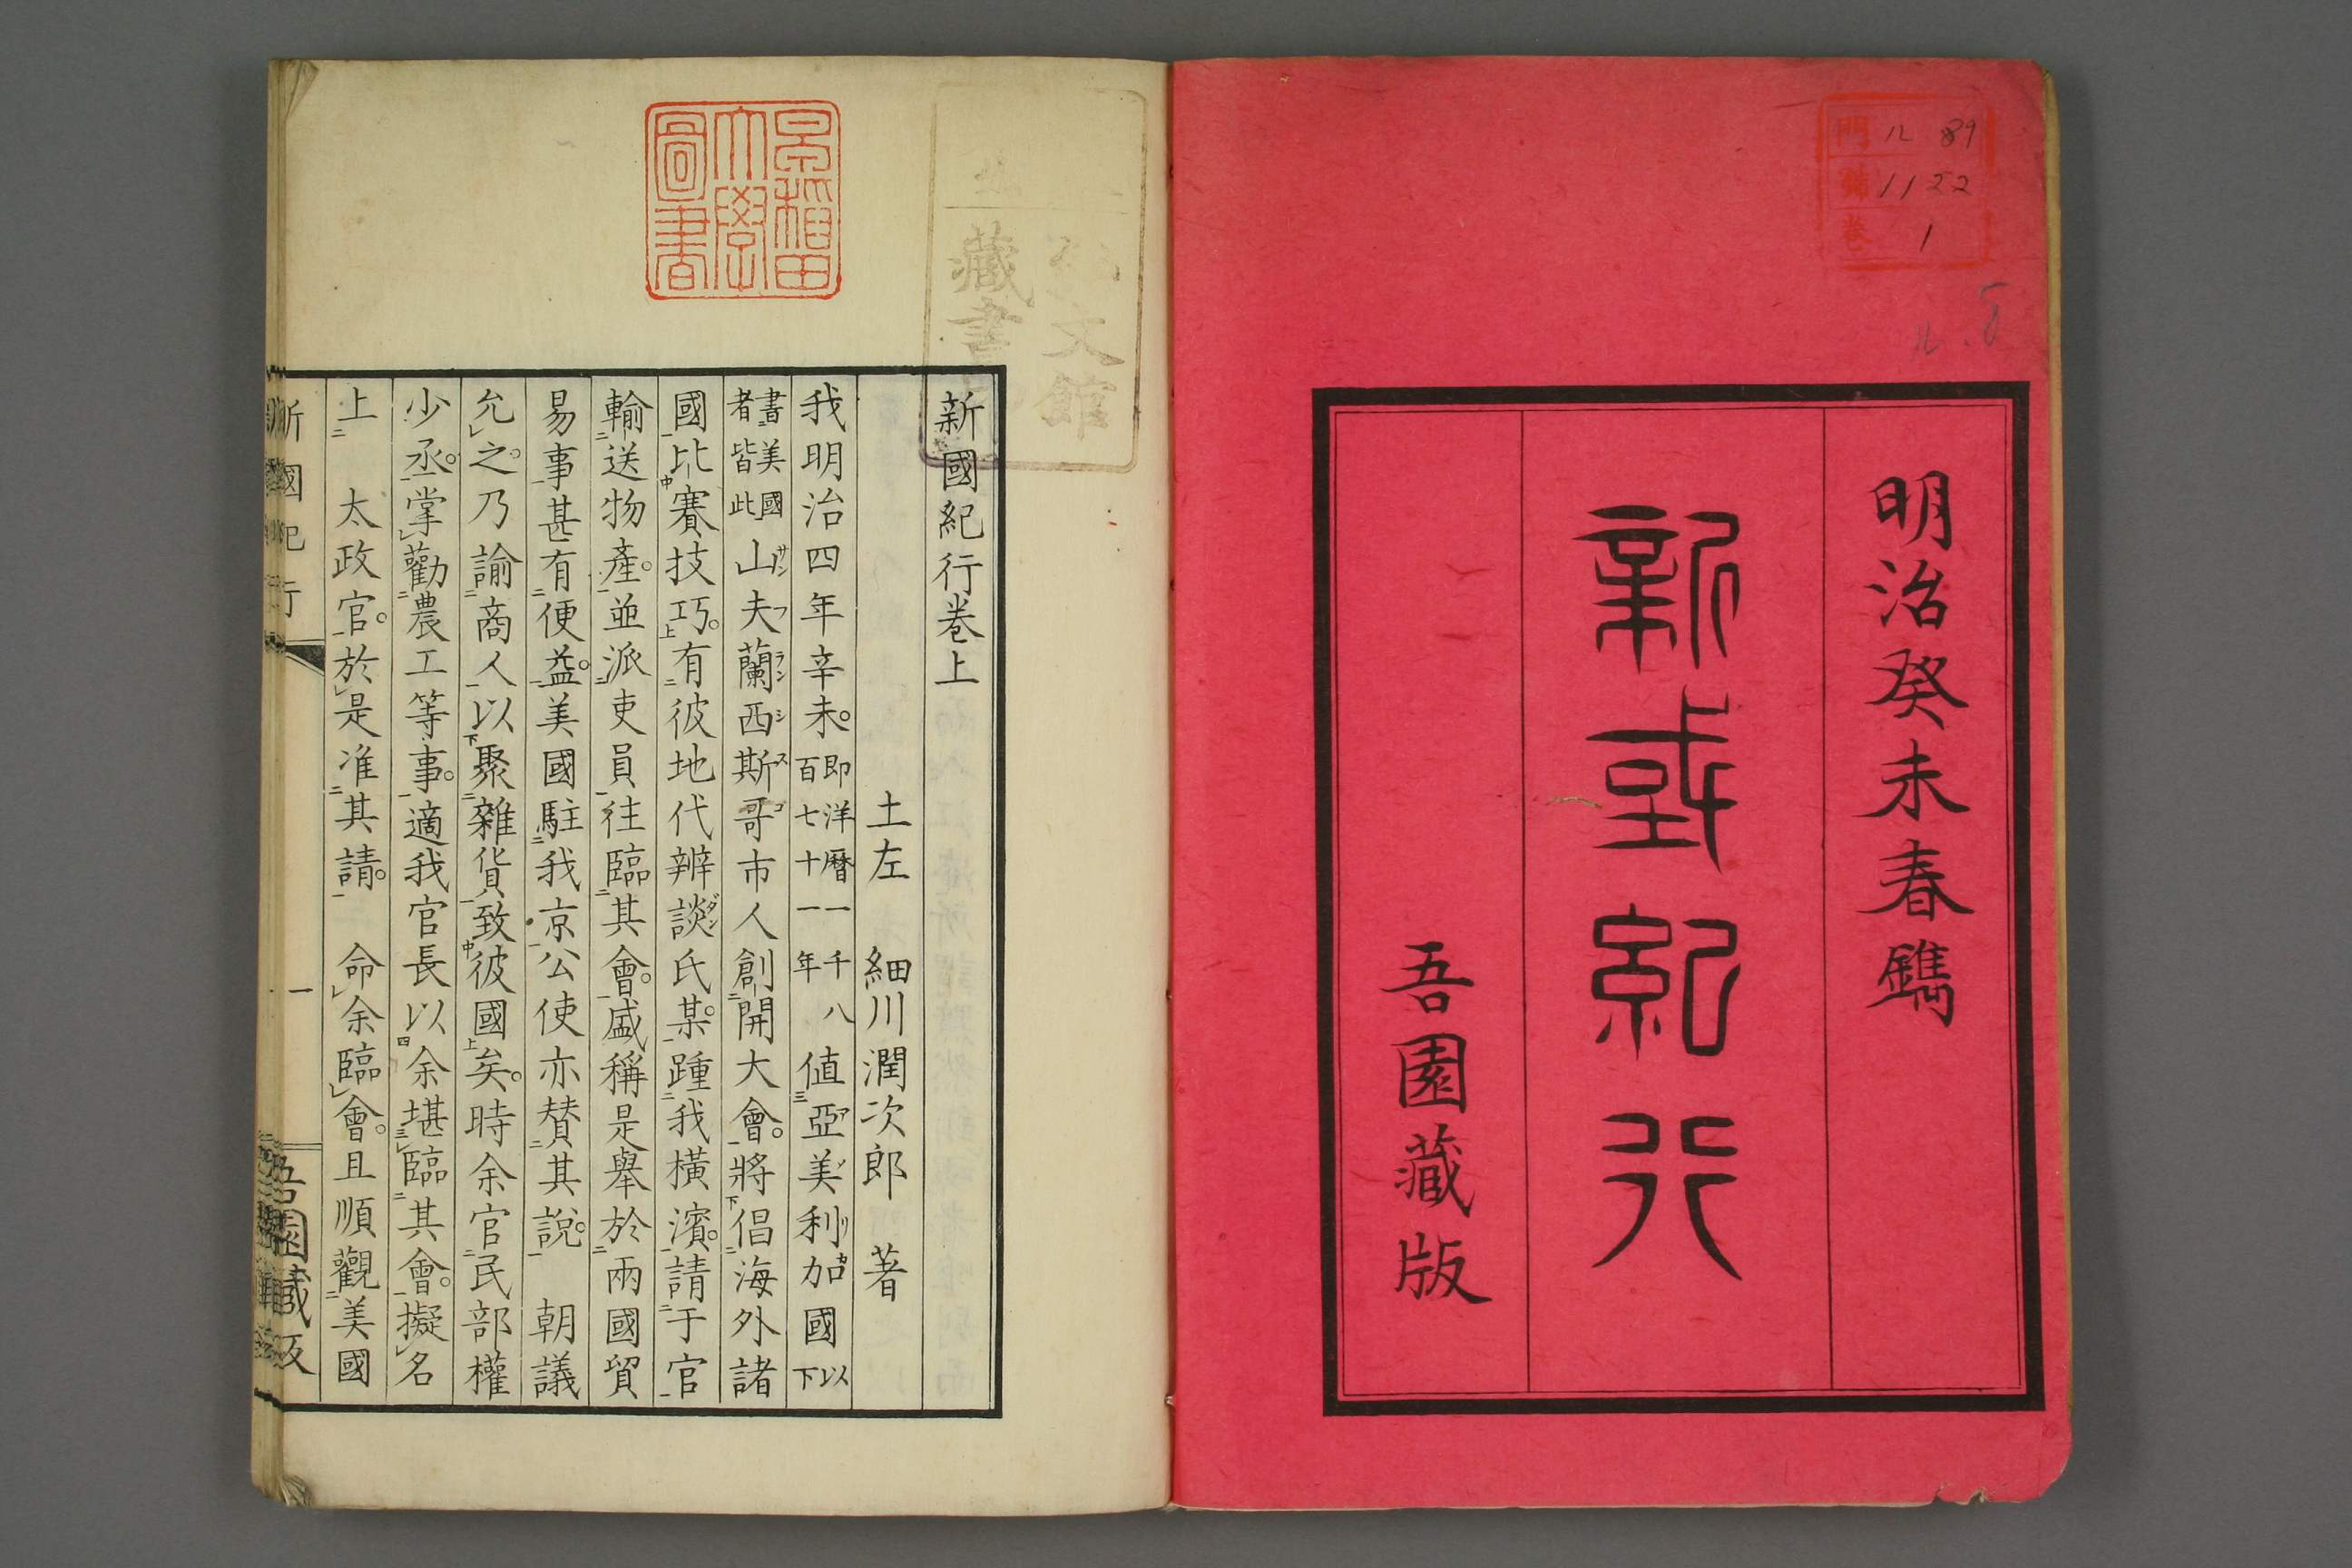 門 ル 89
號 1122
巻 1
ル.8
明治癸未春鐫
新國紀行
吾園藏版
早稲田
大學
圖書
文館
藏書
新國紀行巻上
土左 細川潤次郎 著
我明治四年辛未。即洋曆一千八百七十一年値亞美利加國以下
書美國者皆此山夫蘭西斯哥市人創開大會。將倡海外諸
國比賽技巧。有彼地代辨談氏某。踵我橫濱。請于官
輸送物產。並派吏員往臨其會。盛稱是舉於兩國貿
易事甚有便益。美國駐我京公使亦賛其說。 朝議
允之。乃諭商人以聚雜貨致彼國矣。時余官民部權
少丞。掌勸農工等事。適我官長以余堪臨其會。擬名
上 太政官。於是准其請。 命余臨會。且順觀美國
新國紀行 一 吾園藏版